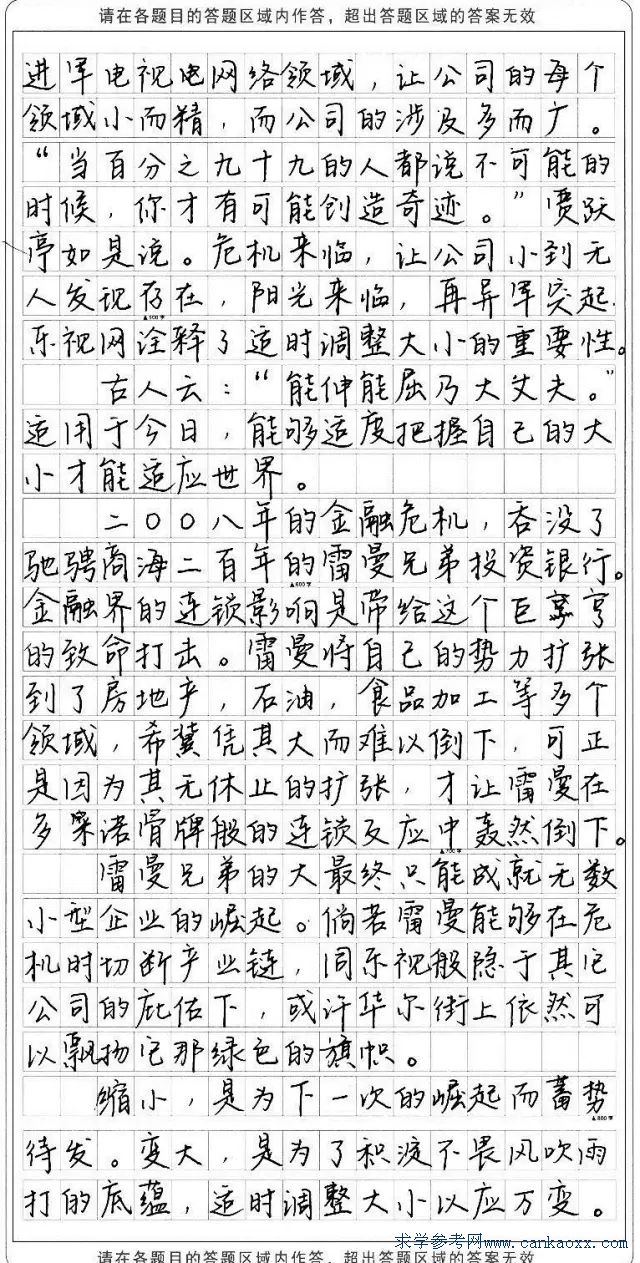 请在各题目的答题区域内作答，超出答题区域的答案无效
进军电视电网络领域，让公司的每个
领域小而精，而公司的涉及多而广。
“当百分之九十九的人都说不可能的
时候，你才有可能创造奇迹。”贾跃
亭如是说。危机来临，让公司小到无
人发现存在，阳光来临，再异军突起.
▲500字
乐视网诠释了适时调整大小的重要性。
古人云：“能伸能屈乃大丈夫。”
适用于今日，能够适度把握自己的大
小才能适应世界。
二〇〇八年的金融危机，吞没了
驰骋商海二百年的雷曼兄弟投资银行。
▲600字
金融界的连锁影响是带给这个巨亨
的致命打击。雷曼将自己的势力扩张
到了房地产，石油，食品加工等多个
领域，希冀凭其大而难以倒下，可正
是因为其无休止的扩张，才让雷曼在
多米诺骨牌般的连锁反应中轰然倒下。
▲700字
雷曼兄弟的大最终只能成就无数
小型企业的崛起。倘若雷曼能够在危
机时切断产业链，同乐视般隐于其它
公司的庇佑下，或许华尔街上依然可
以飘扬它那绿色的旗帜。
缩小，是为下一次的崛起而蓄势
▲800字
待发。变大，是为了积淀不畏风吹雨
打的底蕴，适时调整大小以应万变。
求学参考网www.cankaoxx.com
请在各题目的答题区域内作答，超出答题区域的答案无效